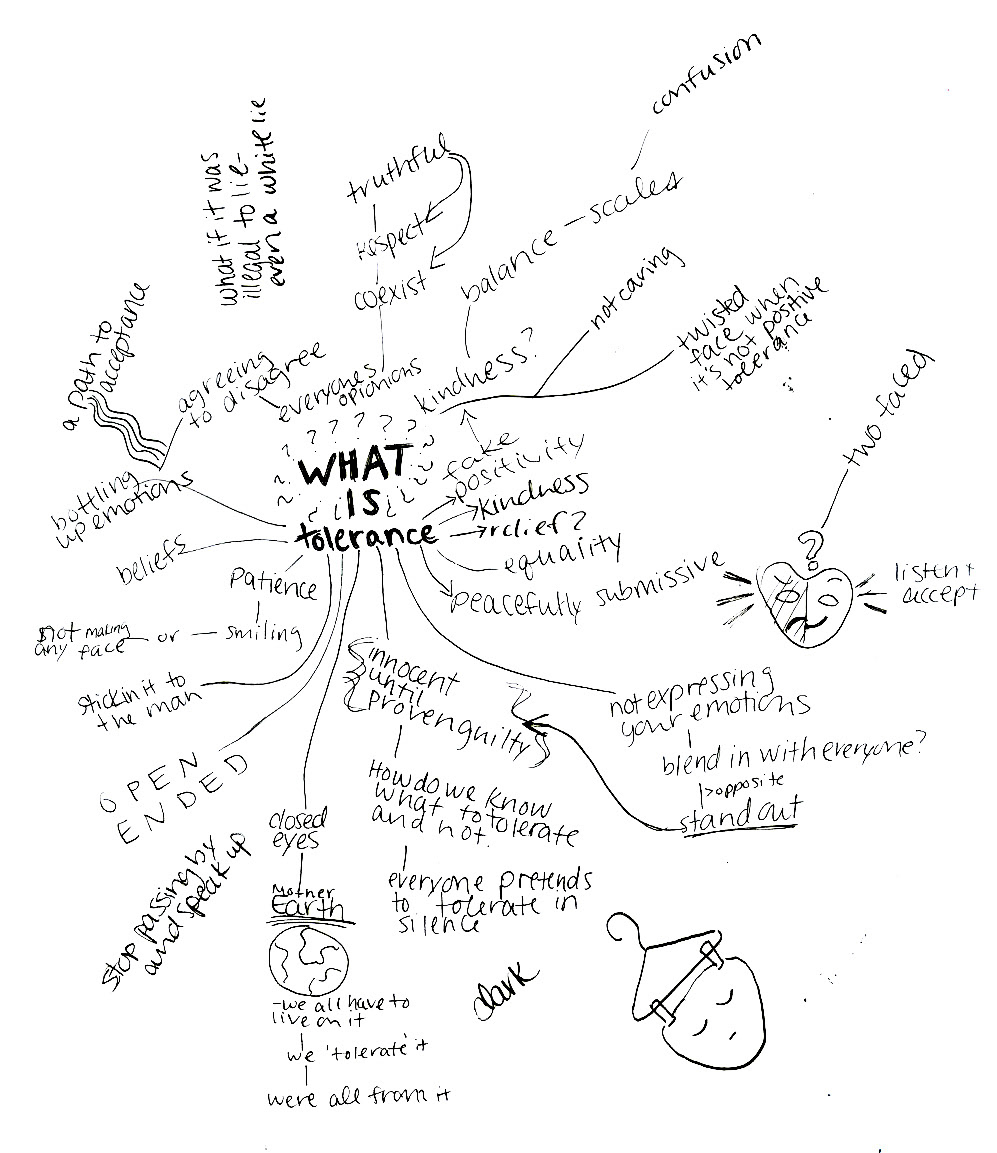 confusion
what if it was
illegal to lie-
even a white lie
truthful
respect
coexist
balance
scales
not caring
twisted
face when
it's not positive
tolerance
a path to
acceptance
agreeing
to disagree
everyones
opinions
kindness?
two faced
? ? ? ? ?
WHAT
IS
tolerance
fake
positivity
kindness
relief?
equality
peacefully submissive
bottling
up emotions
beliefs
Patience
smiling
or
not making
any face
?
listen +
accept
stickin it to
the man
OPEN
ENDED
innocent
until
proven guilty
not expressing
your emotions
blend in with everyone?
opposite
stand out
How do we know
what to tolerate
and not.
everyone pretends
to tolerate in
silence
closed
eyes
Mother
Earth
-we all have to
live on it
we 'tolerate' it
were all from it
stop passing by
and speak up
dark